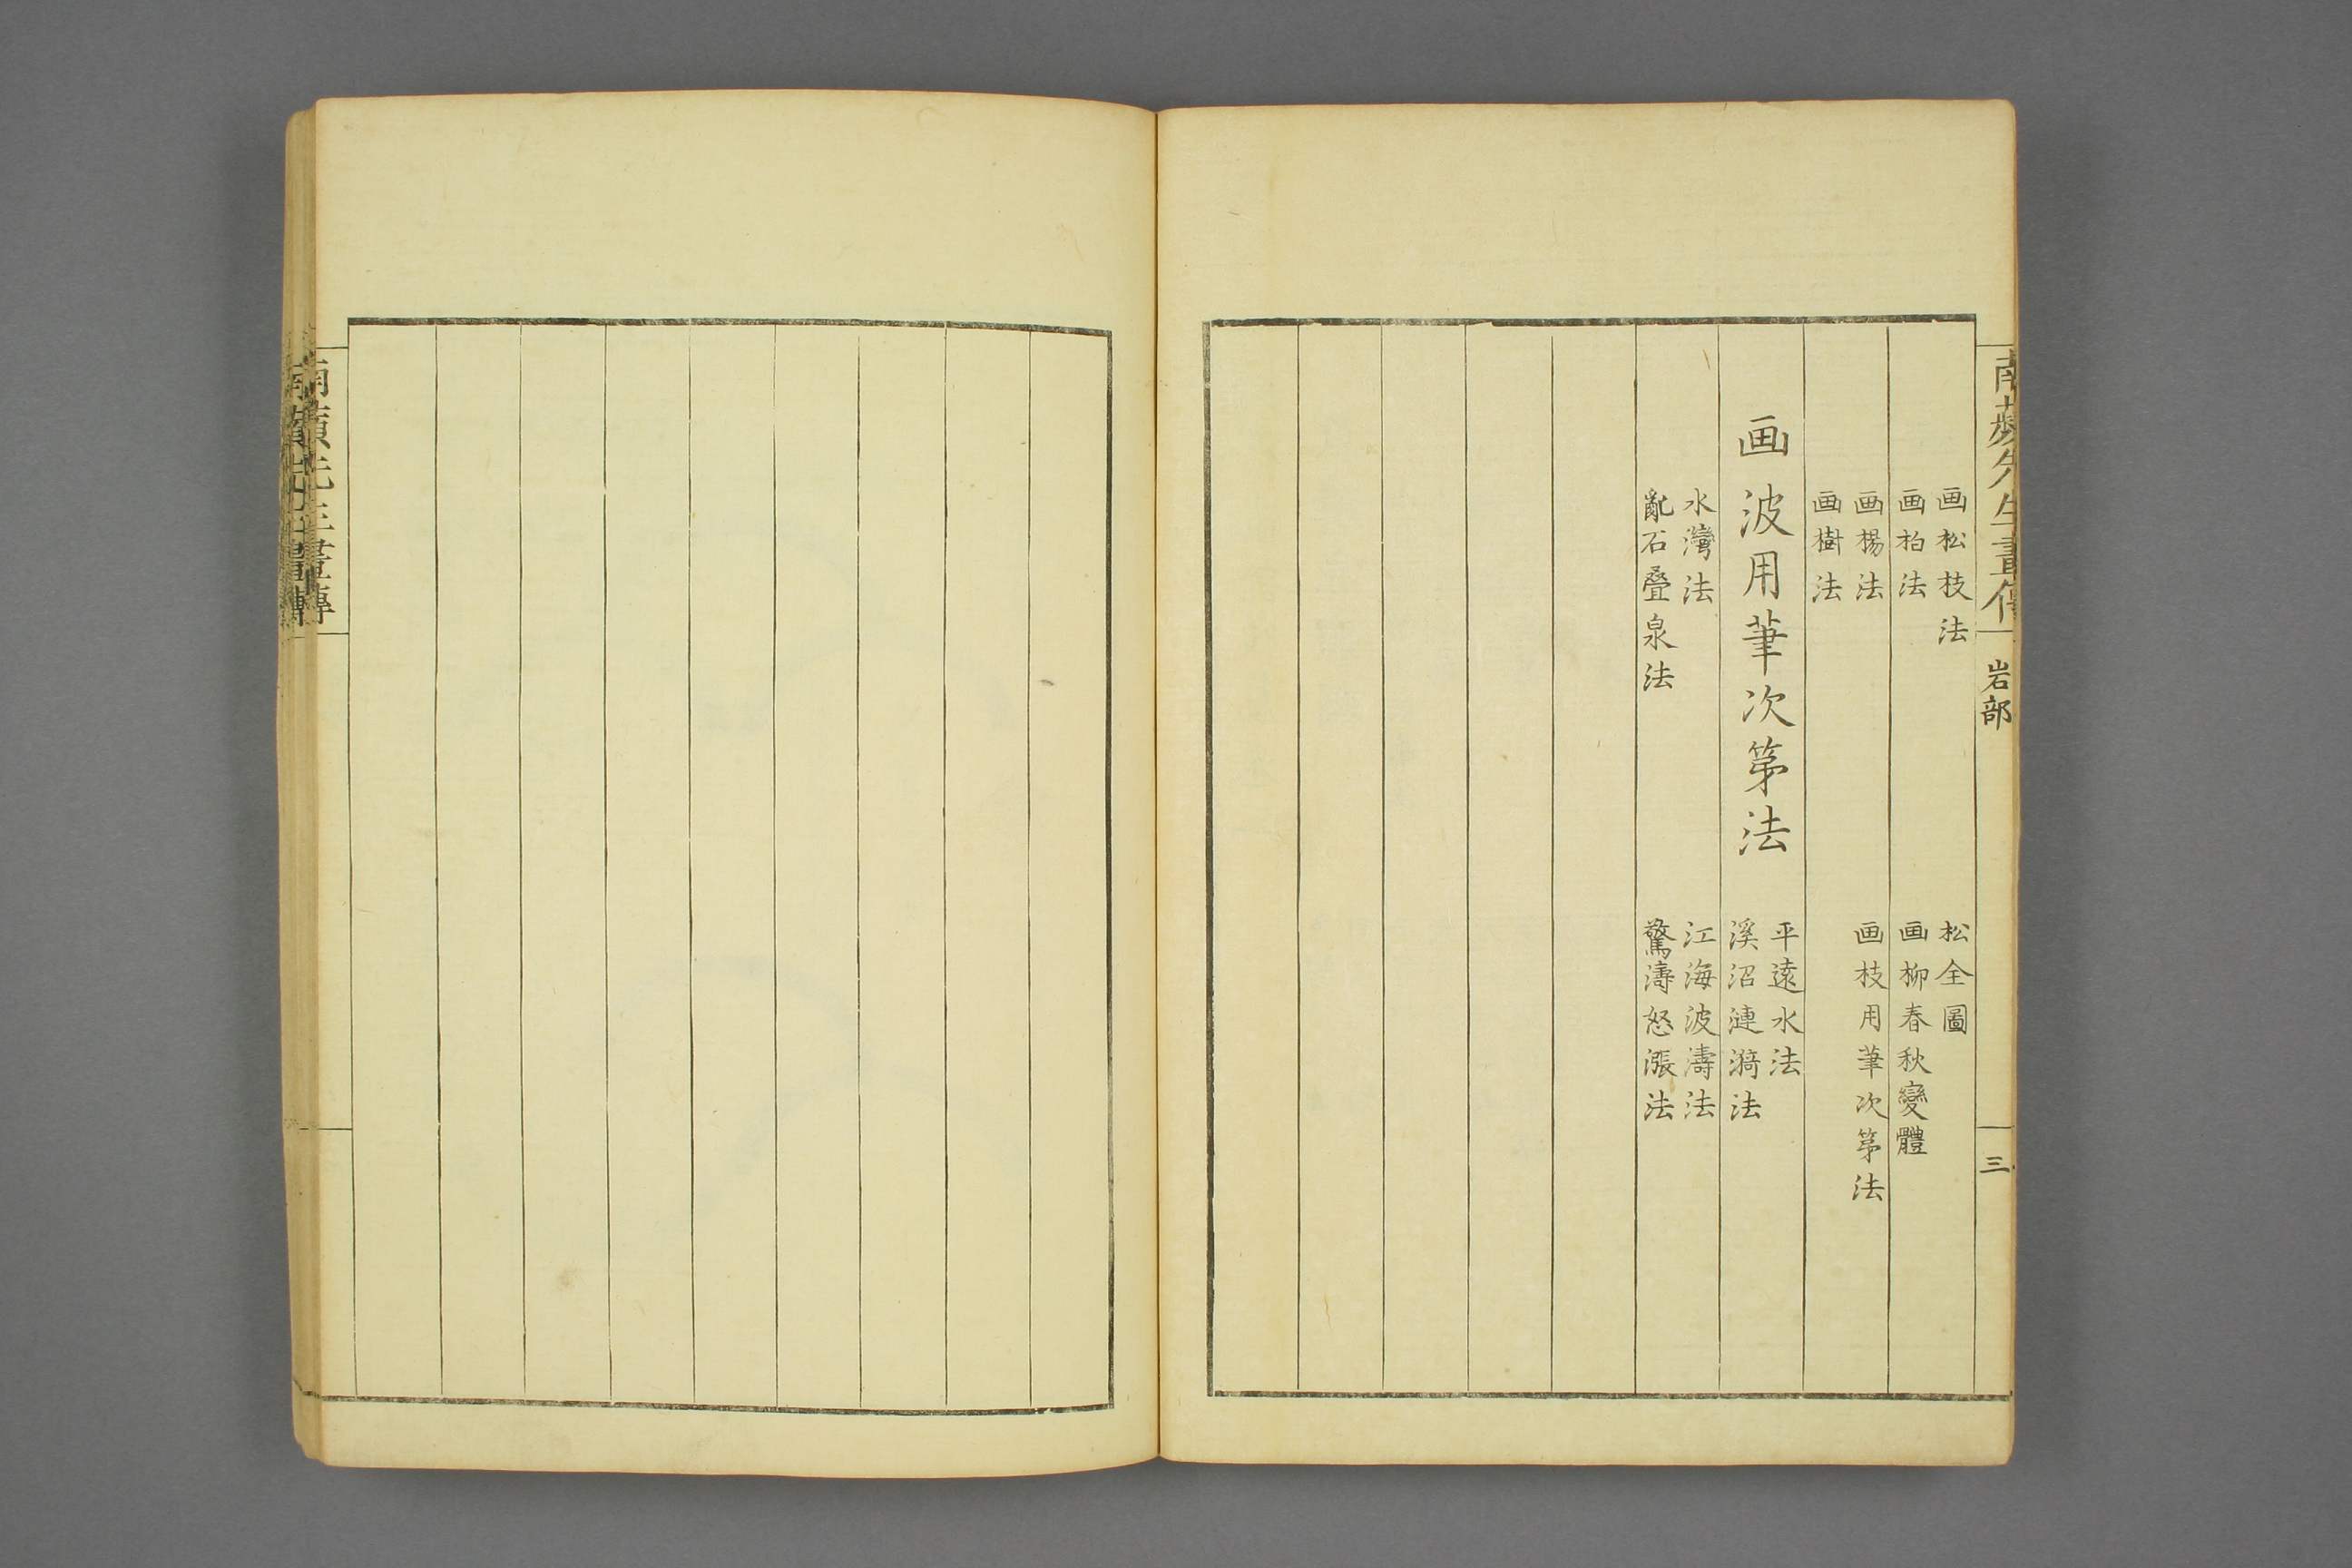 南蘋先生畫傳
岩部
三
画松枝法 松全圖
画柏法 画柳春秋變體
画楊法 画枝用筆次第法
画樹法
画波用筆次第法
平遠水法
溪沼漣漪法
水灣法 江海波濤法
亂石疊泉法 驚濤怒漲法
南蘋先生畫傳